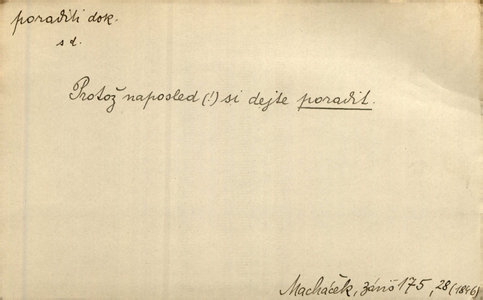 poraditi dok.
s d.
Protož naposled (!) si dejte poradit.
Macháček, 175, 28 (1846)